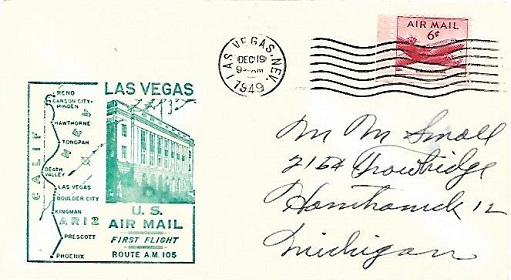 LAS VEGAS, NEV.
DEC 19
9 PM
1949
AIR MAIL
6¢
LAS VEGAS
RENO
CARSON CITY-
MINDEN
HAWTHORNE
TONOPAH
DEATH
VALLEY
LAS VEGAS
BOULDER CITY
KINGMAN
PRESCOTT
PHOENIX
CALIF
ARIZ
U.S.
AIR MAIL
FIRST FLIGHT
ROUTE A.M. 105
M M Small
2154 Trowbridge
Hamtramck 12
Michigan